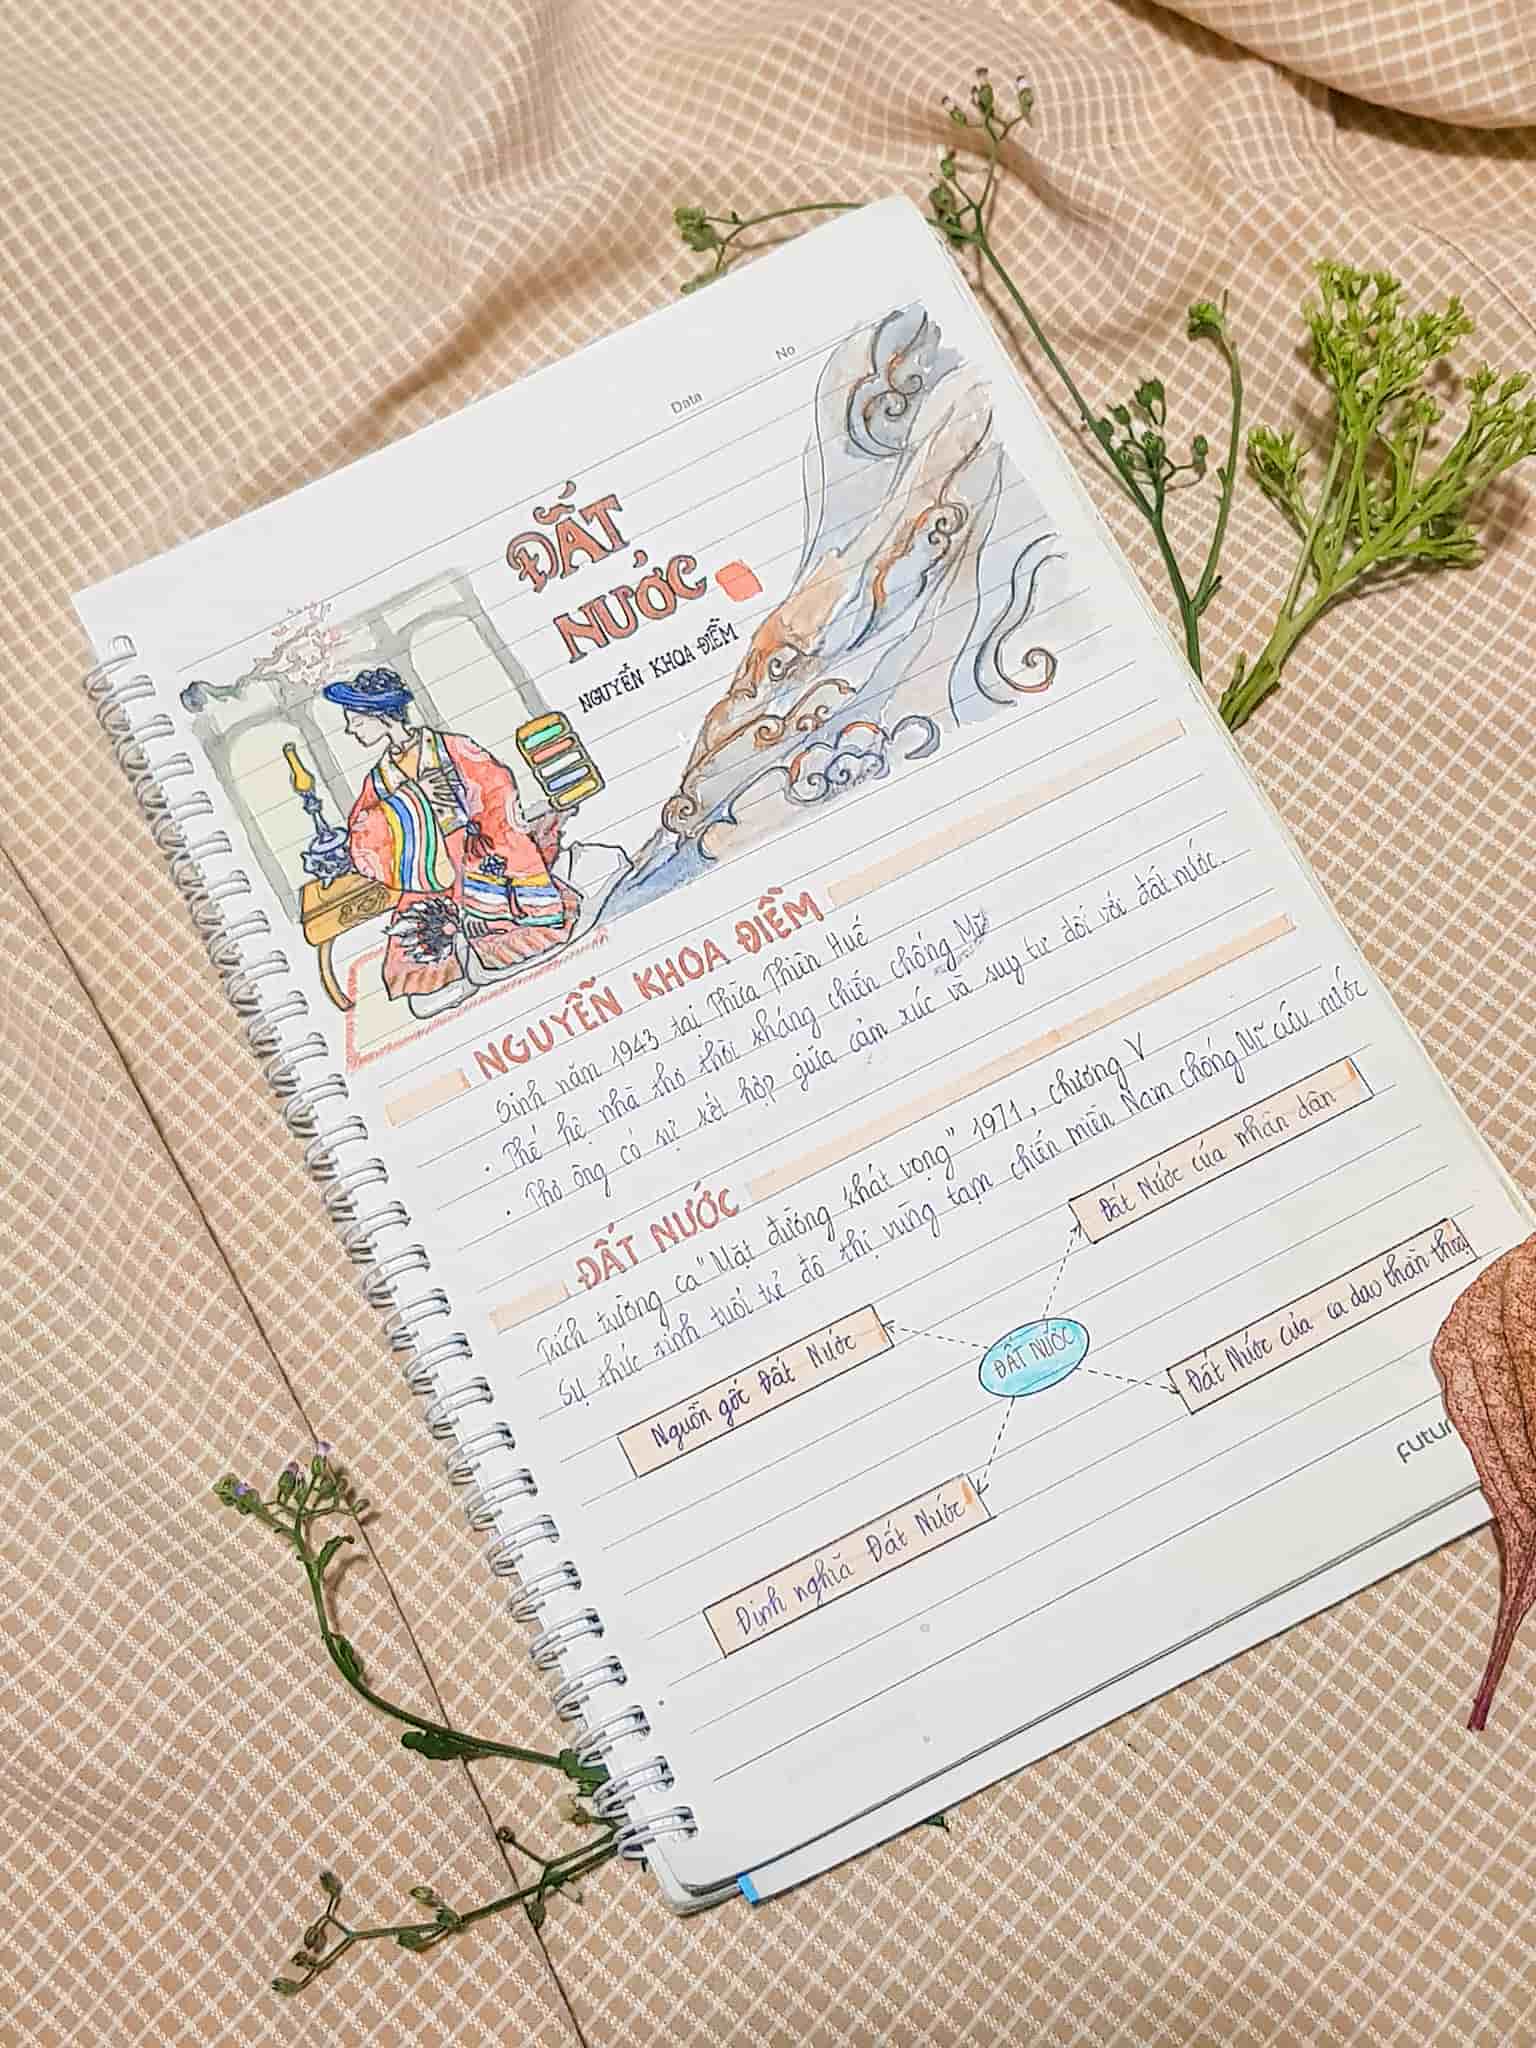 No
Data
ĐẤT
NƯỚC
NGUYỄN KHOA ĐIỀM
NGUYỄN KHOA ĐIỀM
Sinh năm 1943 tại Thừa Thiên Huế
• Thế hệ nhà thơ thời kháng chiến chống Mĩ
• Thơ ông có sự kết hợp giữa cảm xúc và suy tư đối với đất nước.
ĐẤT NƯỚC
Trích trường ca "Mặt đường khát vọng" 1971, chương V
Sự thức tỉnh tuổi trẻ đô thị vùng tạm chiến miền Nam chống Mĩ cứu nước
Đất Nước của nhân dân
Nguồn gốc Đất Nước
ĐẤT NƯỚC
Đất Nước của ca dao thần thoại
Định nghĩa Đất Nước